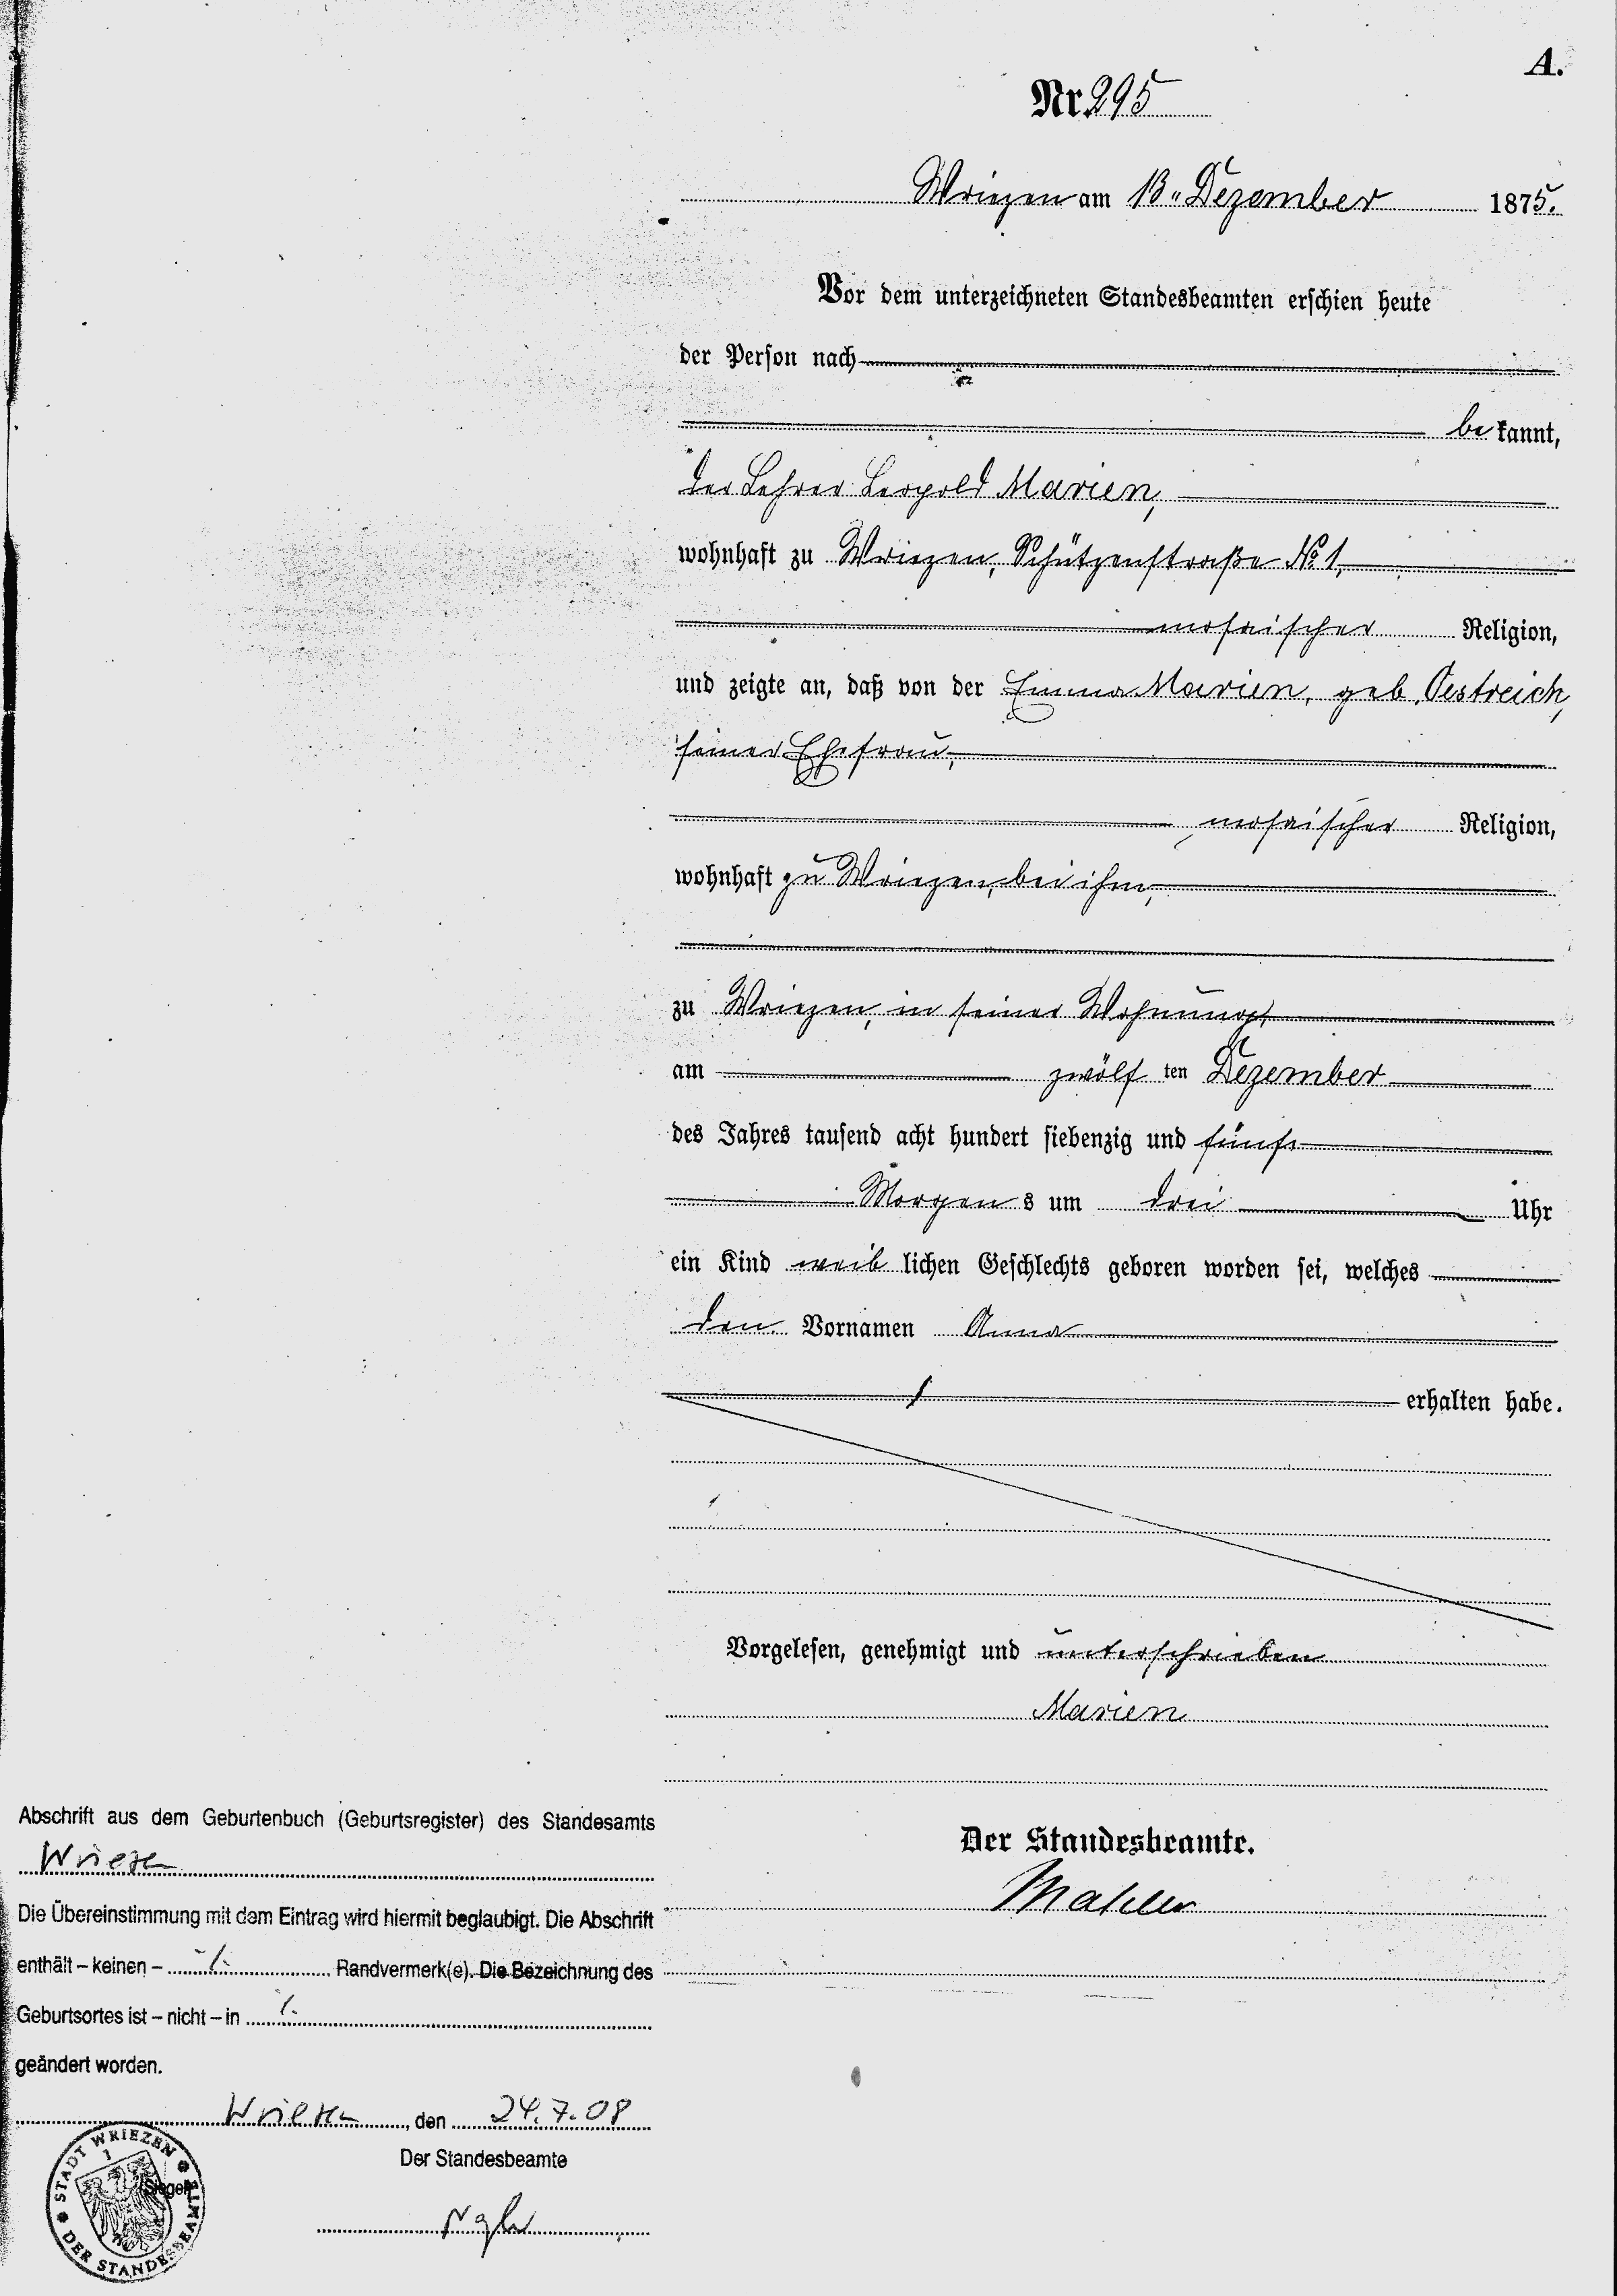 A.
Nr. 295
Wriezen am 13. Dezember 1875.
Vor dem unterzeichneten Standesbeamten erschien heute
der Person nach
bekannt,
der Lehrer Leopold Marien,
wohnhaft zu Wriezen, Schützenstraße No 1,
mosaischer Religion,
und zeigte an, daß von der Emma Marien, geb. Oestreich,
seiner Ehefrau,
mosaischer Religion,
wohnhaft zu Wriezen, bei ihm,
zu Wriezen, in seiner Wohnung,
am zwölf ten Dezember
des Jahres tausend acht hundert siebenzig und fünf
Morgens um drei Uhr
ein Kind weiblichen Geschlechts geboren worden sei, welches
den Vornamen Anna
erhalten habe.
Vorgelesen, genehmigt und unterschrieben
Marien
Der Standesbeamte.
Abschrift aus dem Geburtenbuch (Geburtsregister) des Standesamts
Wriezen
Die Übereinstimmung mit dem Eintrag wird hiermit beglaubigt. Die Abschrift
enthält – keinen – -/- Randvermerk(e). Die Bezeichnung des
Geburtsortes ist – nicht – in /.
geändert worden.
Wriezen, den 24.7.08
Der Standesbeamte
(Siegel)
STADT WRIEZEN
1
DER STANDESBEAMTE